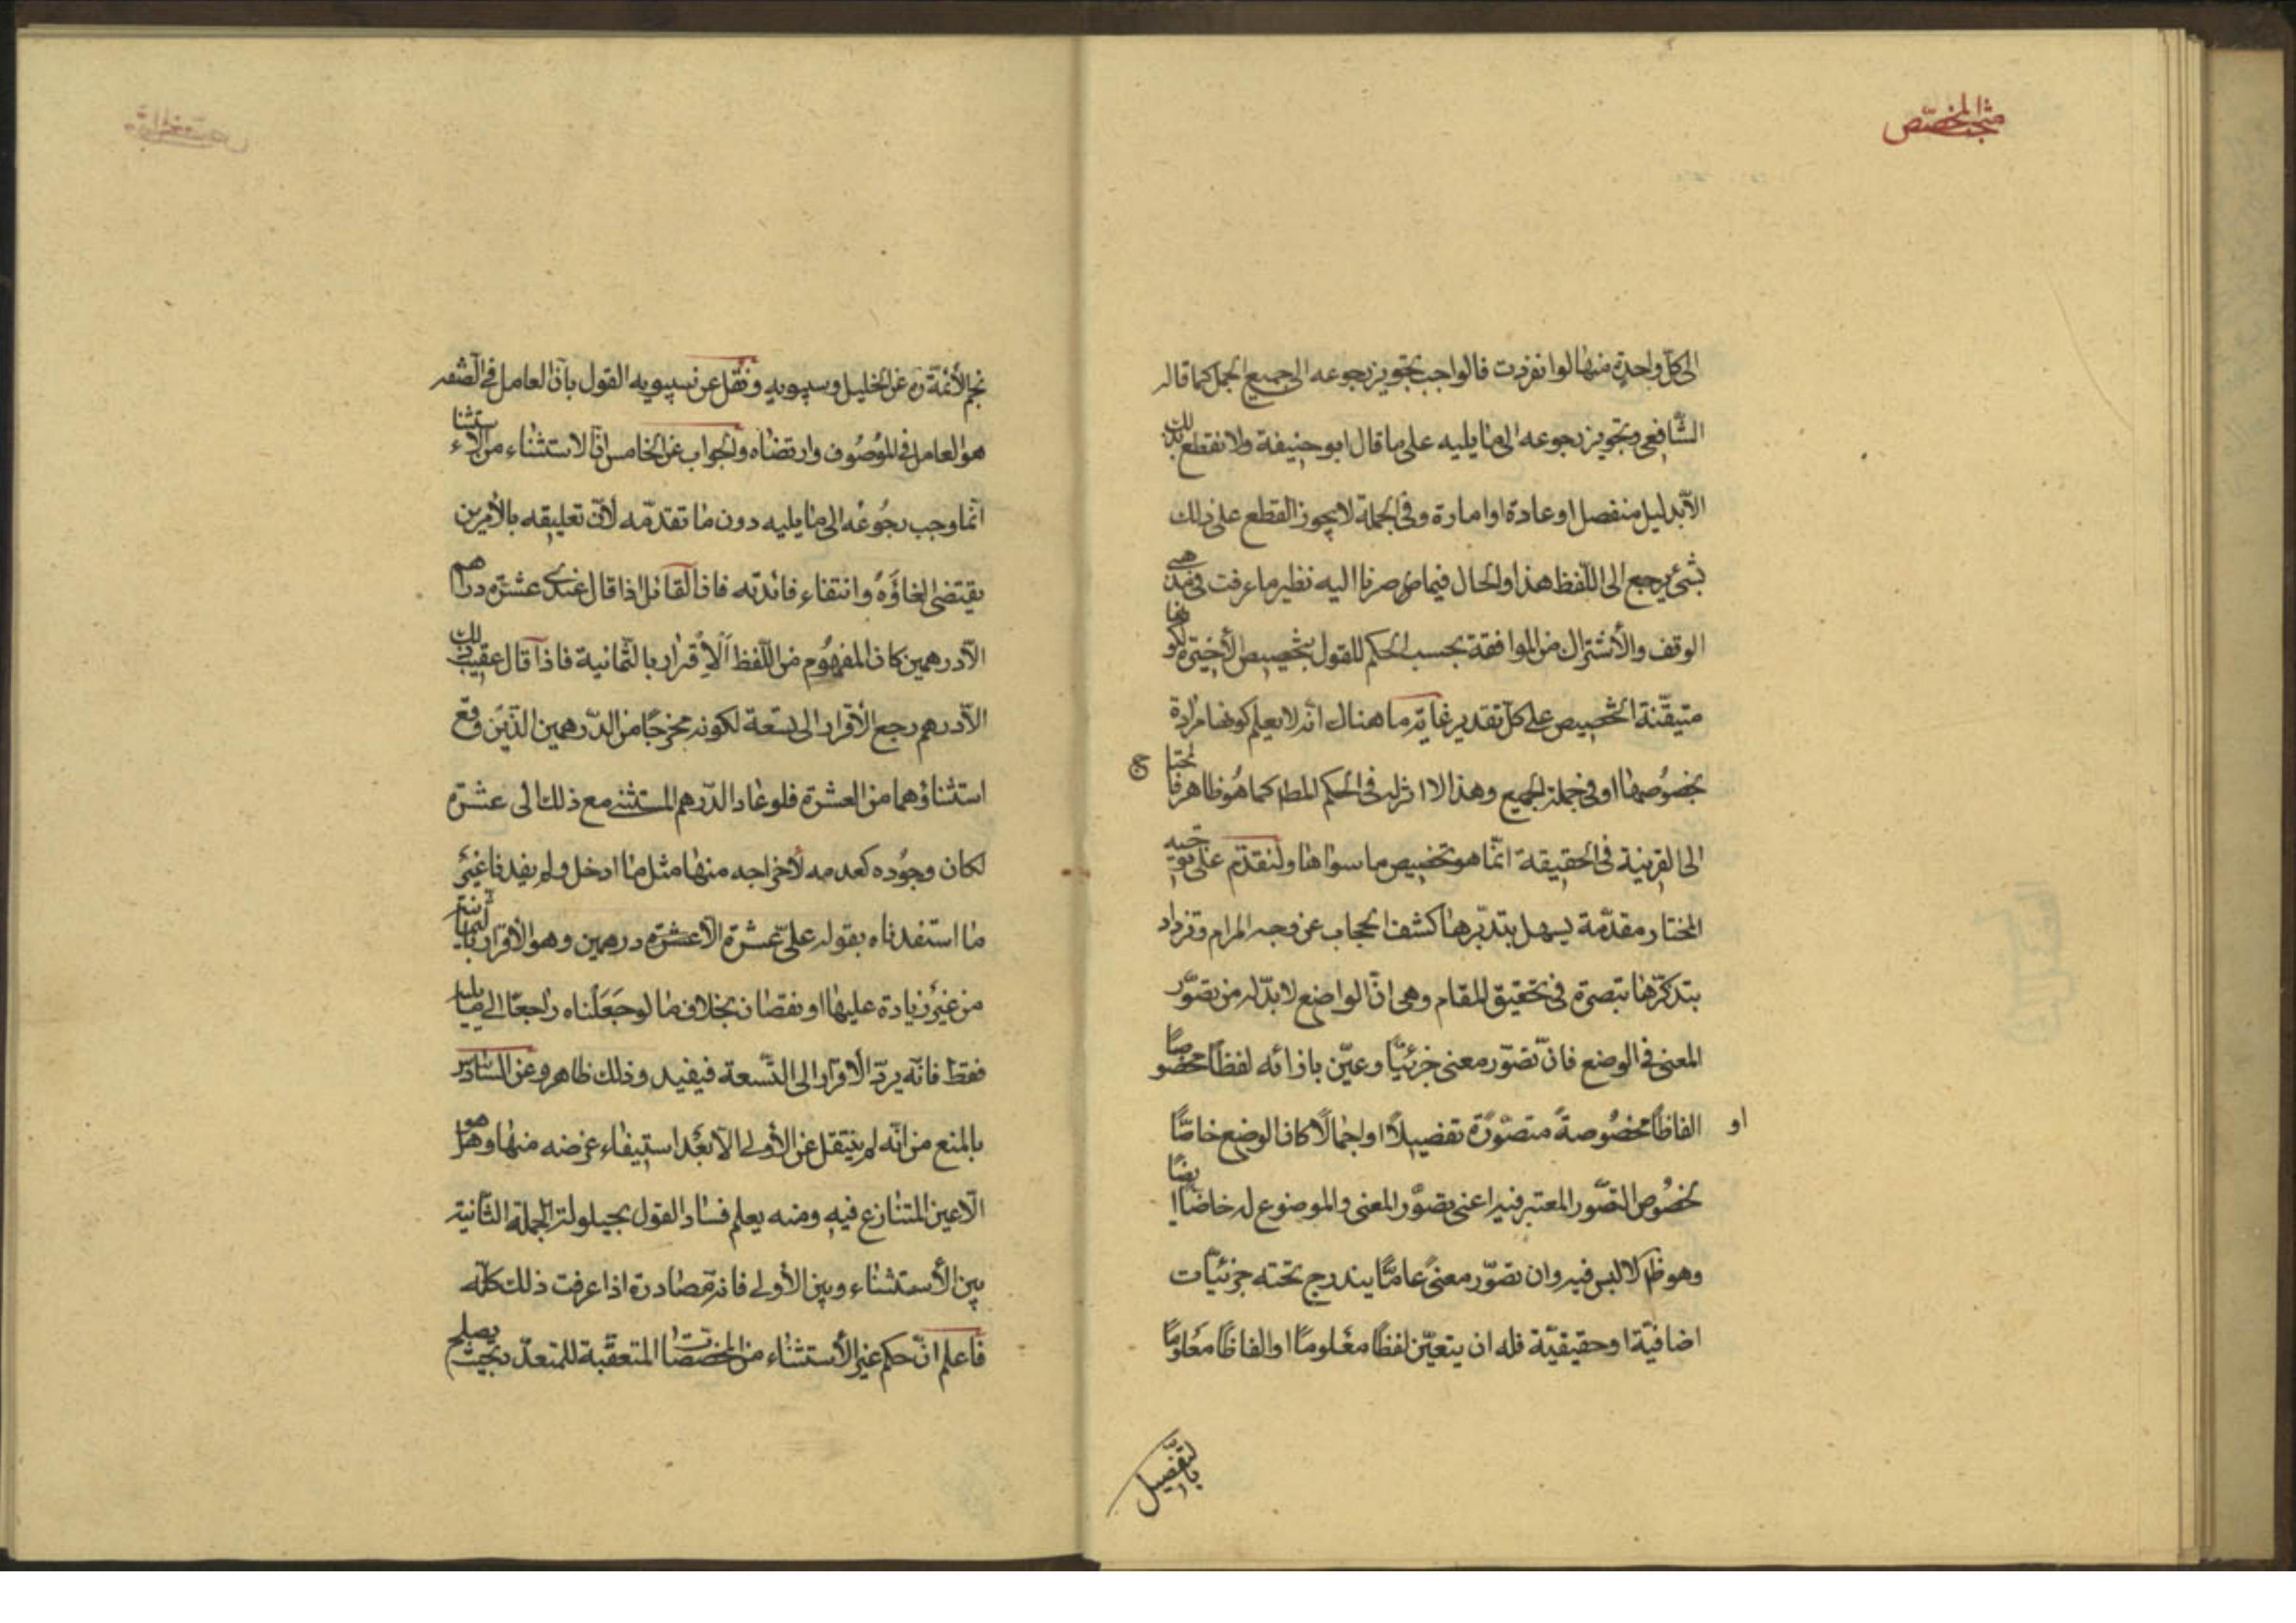 مبحث المخصص
الى كل واحدة منها لو انفردت فالواجب تجويز رجوعه الى جميع الجمل كما قاله
الشافعى وتجويز رجوعه الى ما يليه على ما قال ابو حنيفة ولا نقطع بذلك
الا بدليل منفصل او عادة او امارة وفى الجملة لا يجوز القطع على ذلك
بشئ يرجع الى اللفظ هذا والحال فيما صرنا اليه نظير ما عرفت فى مذهبى
الوقف والاشتراك من الموافقة بحسب الحكم للقول بتخصيص الأخيرة لكونها
متيقنة التخصيص على كل تقدير غاية ما هناك انه لا يعلم كونها مرادة
بخصوصها او فى جملة الجميع وهذا لا اثر له فى الحكم المط كما هو ظاهر فالمحتاج
الى القرينة فى الحقيقة انما هو تخصيص ما سواها ولنقدم على توجيه
المختار مقدمة يسهل بتدبرها كشف الحجاب عن وجه المرام وتزداد
بتذكرها تبصرة فى تحقيق المقام وهى ان الواضع لا بد له من تصور
المعنى فى الوضع فان تصور معنى جزئيا وعين بازائه لفظا مخصوصا
او الفاظا مخصوصة متصورة تفصيلا او اجمالا كان الوضع خاصا
لخصوص التصور المعتبر فيه اعنى تصور المعنى والموضوع له خاصا ايضا
وهو ظ لا لبس فيه وان تصور معنى عاما يندرج تحته جزئيات
اضافية او حقيقية فله ان يتعين لفظا معلوما او الفاظا معلوما
بالتفصيل
نجم الأئمة ره عن الخليل وسيبويه ونقل عن سيبويه القول بان العامل فى الصفه
هو العامل فى الموصوف وارتضاه والجواب عن الخامس ان الاستثناء من الاستثناء
انما وجب رجوعه الى ما يليه دون ما تقدمه لأن تعليقه بالأمرين
يقتضى الغاؤه وانتفاء فائدته فان القائل اذا قال عندى عشرة دراهم
الا درهمين كان المفهوم من اللفظ الاقرار بالثمانية فاذا قال عقيب ذلك
الا درهم رجع الأقرار الى تسعة لكونه مخرجا من الدرهمين الذين وقع
استثناؤهما من العشرة فلو عاد الدرهم المستثنى مع ذلك الى عشرة
لكان وجوده كعدمه لأخراجه منها مثل ما ادخل ولم يفدنا غير
ما استفدناه بقوله على عشرة الا عشرة درهمين وهو الأقرار بالثمانية
من غير زيادة عليها او نقصان بخلاف ما لو جعلناه راجعا الى ما يليه
فقط فانه يرد الأقرار الى التسعة فيفيد وذلك ظاهر وعن السادس
بالمنع من انه لم ينتقل عن الأولى الا بعد استيفاء غرضه منها وهل هو
الا عين المتنازع فيه ومنه يعلم فساد القول بحيلولة الجملة الثانية
بين الأستثناء وبين الأولى فانه مصادرة اذا عرفت ذلك كله
فاعلم ان حكم غير الأستثناء من المخصصات المتعقبة للمتعدد بحيث يصلح